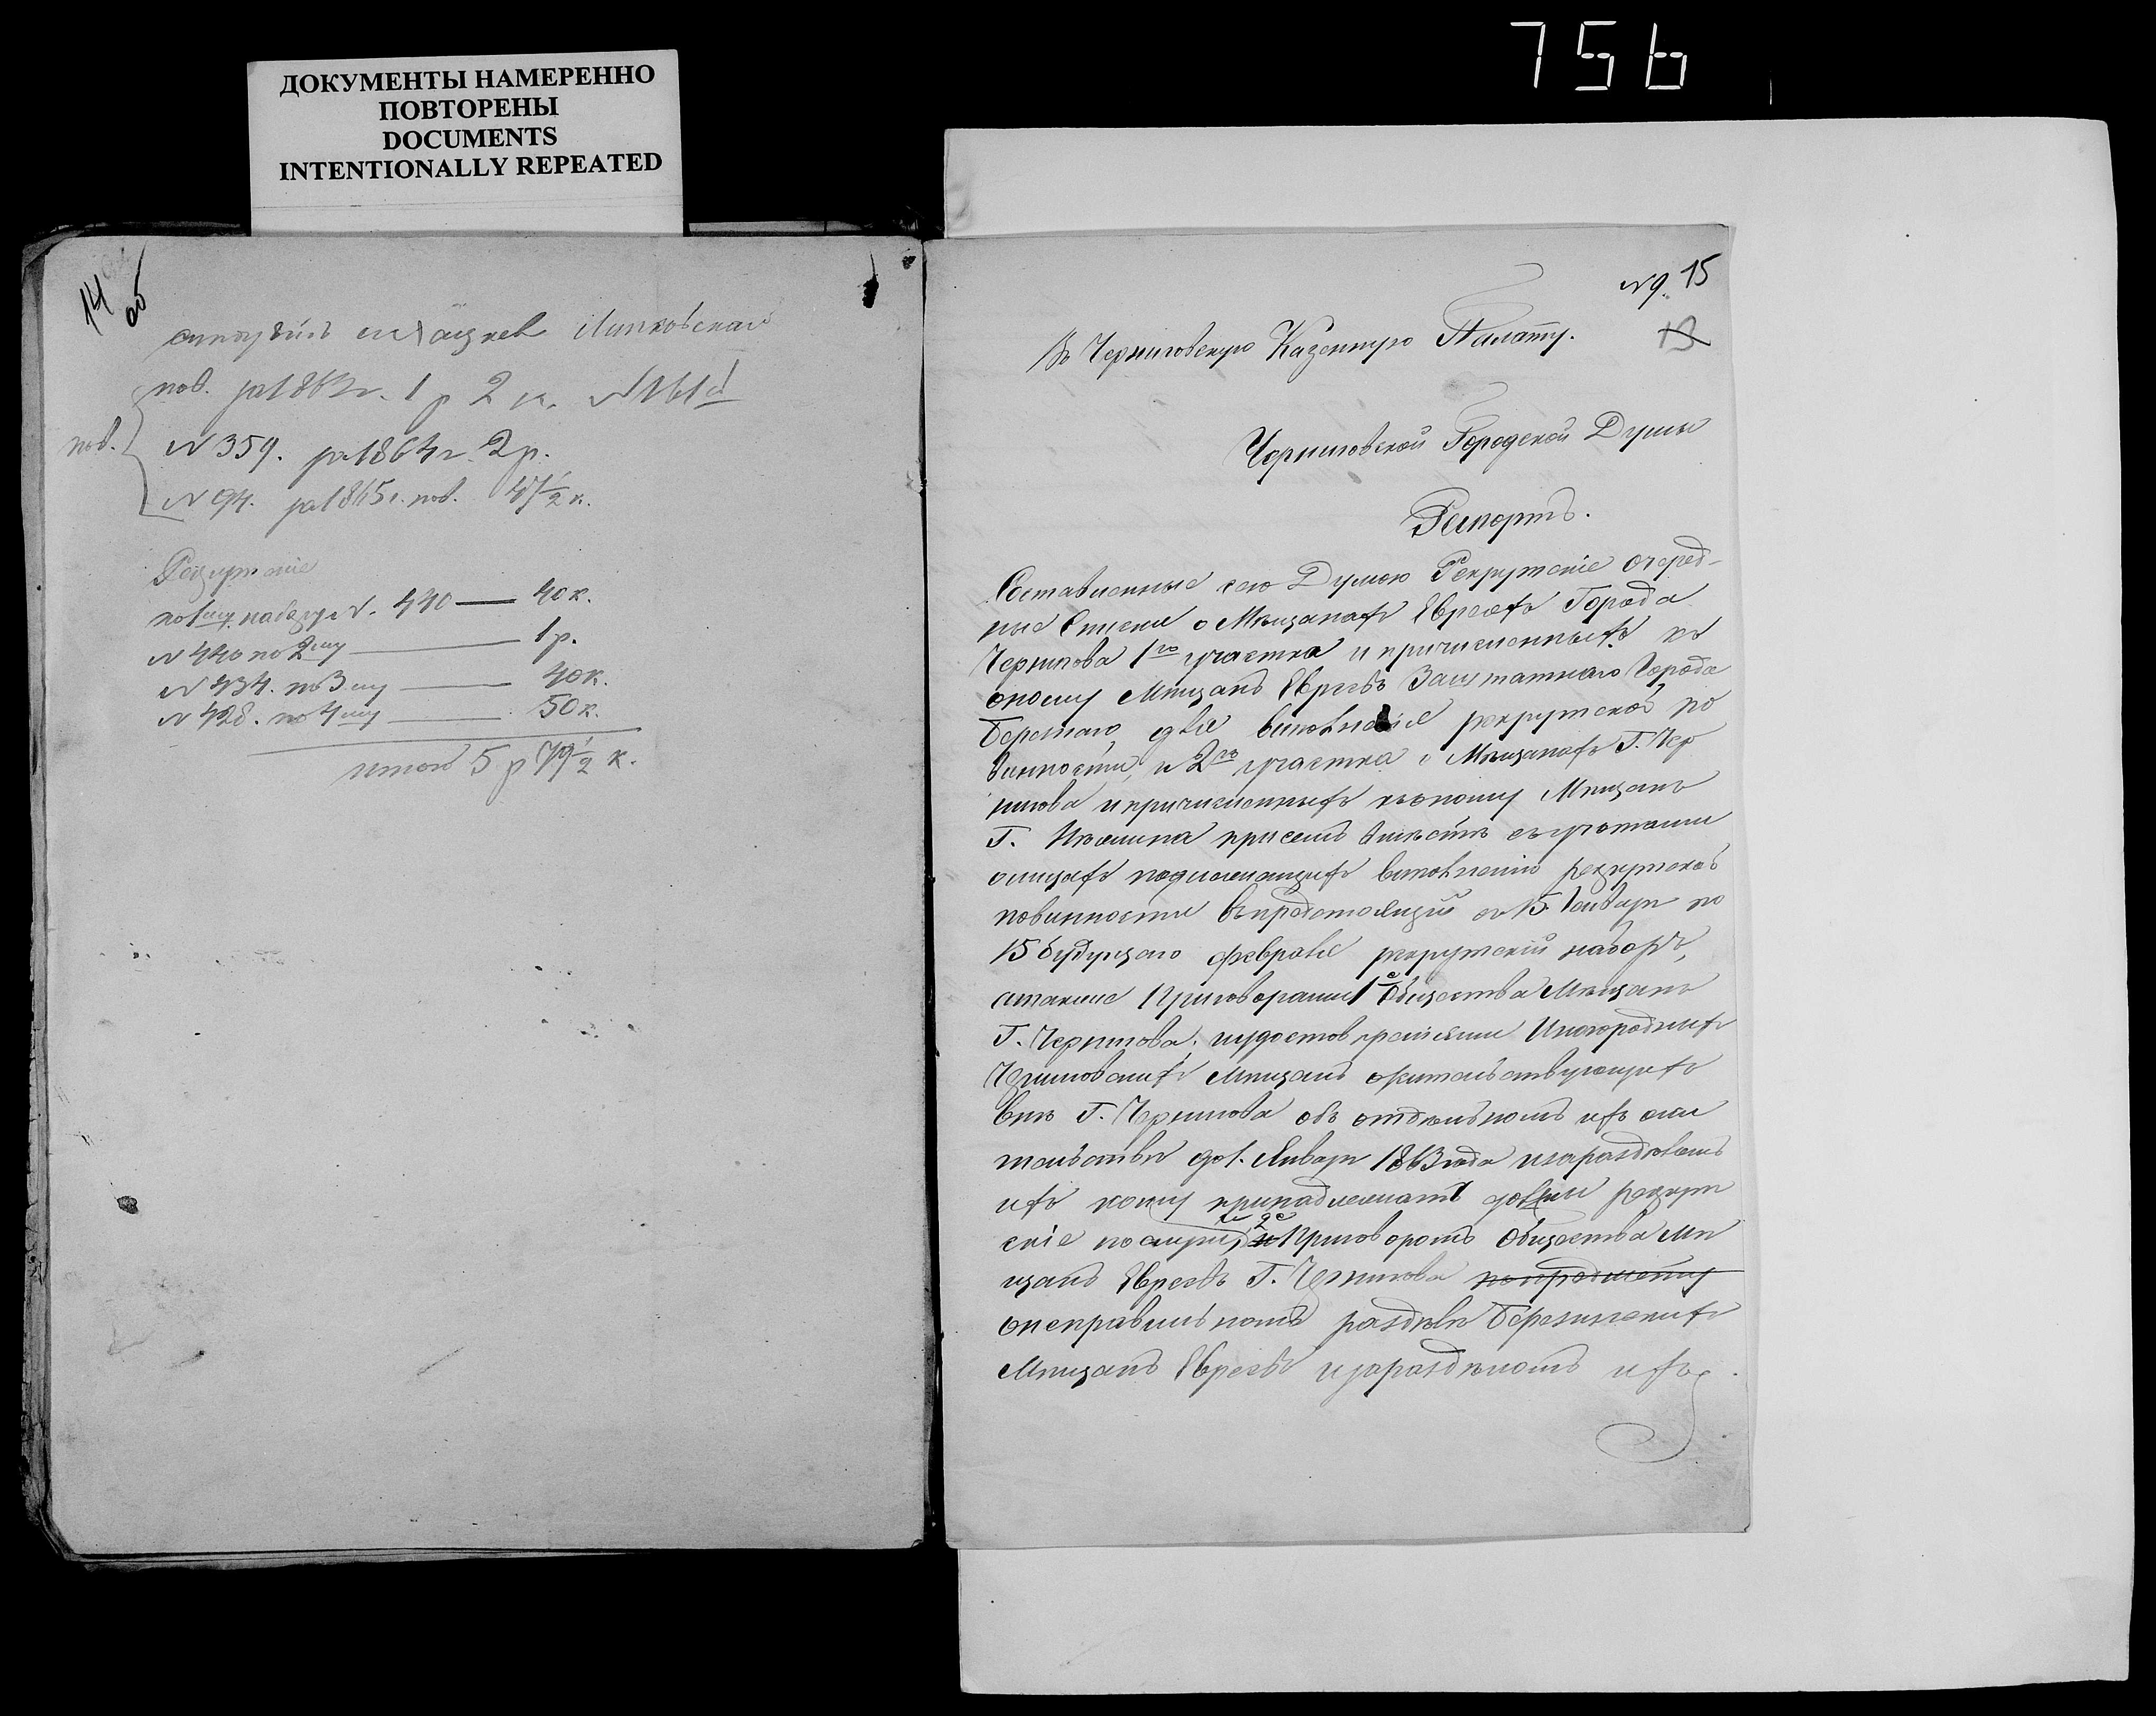 756
ДОКУМЕНТЫ НАМЕРЕННО
ПОВТОРЕНЫ
DOCUMENTS
INTENTIONALLY REPEATED
14
об
Липковскаго
пов. за 1863 г. 1 р 2 к. N 161
пов.
N 359. за 1864 г. 2 р.
N 94. за 1865 г. пов. 47½ к.
N. 440 — 40 к.
N 440 по 2му — 1 р.
N 434. по 3му — 40 к.
N 428. по 4му — 50 к.
итого 5 р 79½ к.
N 9. 15
13
Въ Черниговскую Казенную Палату.
Черниговской Городской Думы
Рапортъ.
Составленные сею Думою Рекрутскіе очеред-
ные Списки о Мѣщанахъ Евреяхъ Города
Чернигова 1го участка и причисленныхъ къ
оному Мѣщанъ Евреевъ Заштатнаго Города
Березнаго для выполненія рекрутской по
винности, и 2го участка о Мѣщанахъ Г. Чер
нигова и причисленныхъ къ оному Мѣщанъ
Г. при семъ вмѣстѣ съ
о лицахъ подлежащихъ выполненію рекрутской
повинности въ предстоящій съ 15 Января по
15 будущаго февраля рекрутскій наборъ,
а также Приговорами 1е Общества Мѣщанъ
Г. Чернигова, Иногородныхъ
Черниговскихъ Мѣщанъ жительствующихъ
внѣ Г. Чернигова объ отдѣльномъ ихъ жи
тельствѣ до 1. Января 1863 года и о раздѣлахъ
ихъ кому принадлежатъ рекрут
скіе и 2е Приговоромъ Общества Мѣ
щанъ Евреевъ Г. Чернигова
о неправильномъ раздѣлѣ Березинскихъ
Мѣщанъ Евреевъ и о раздѣлѣ ихъ